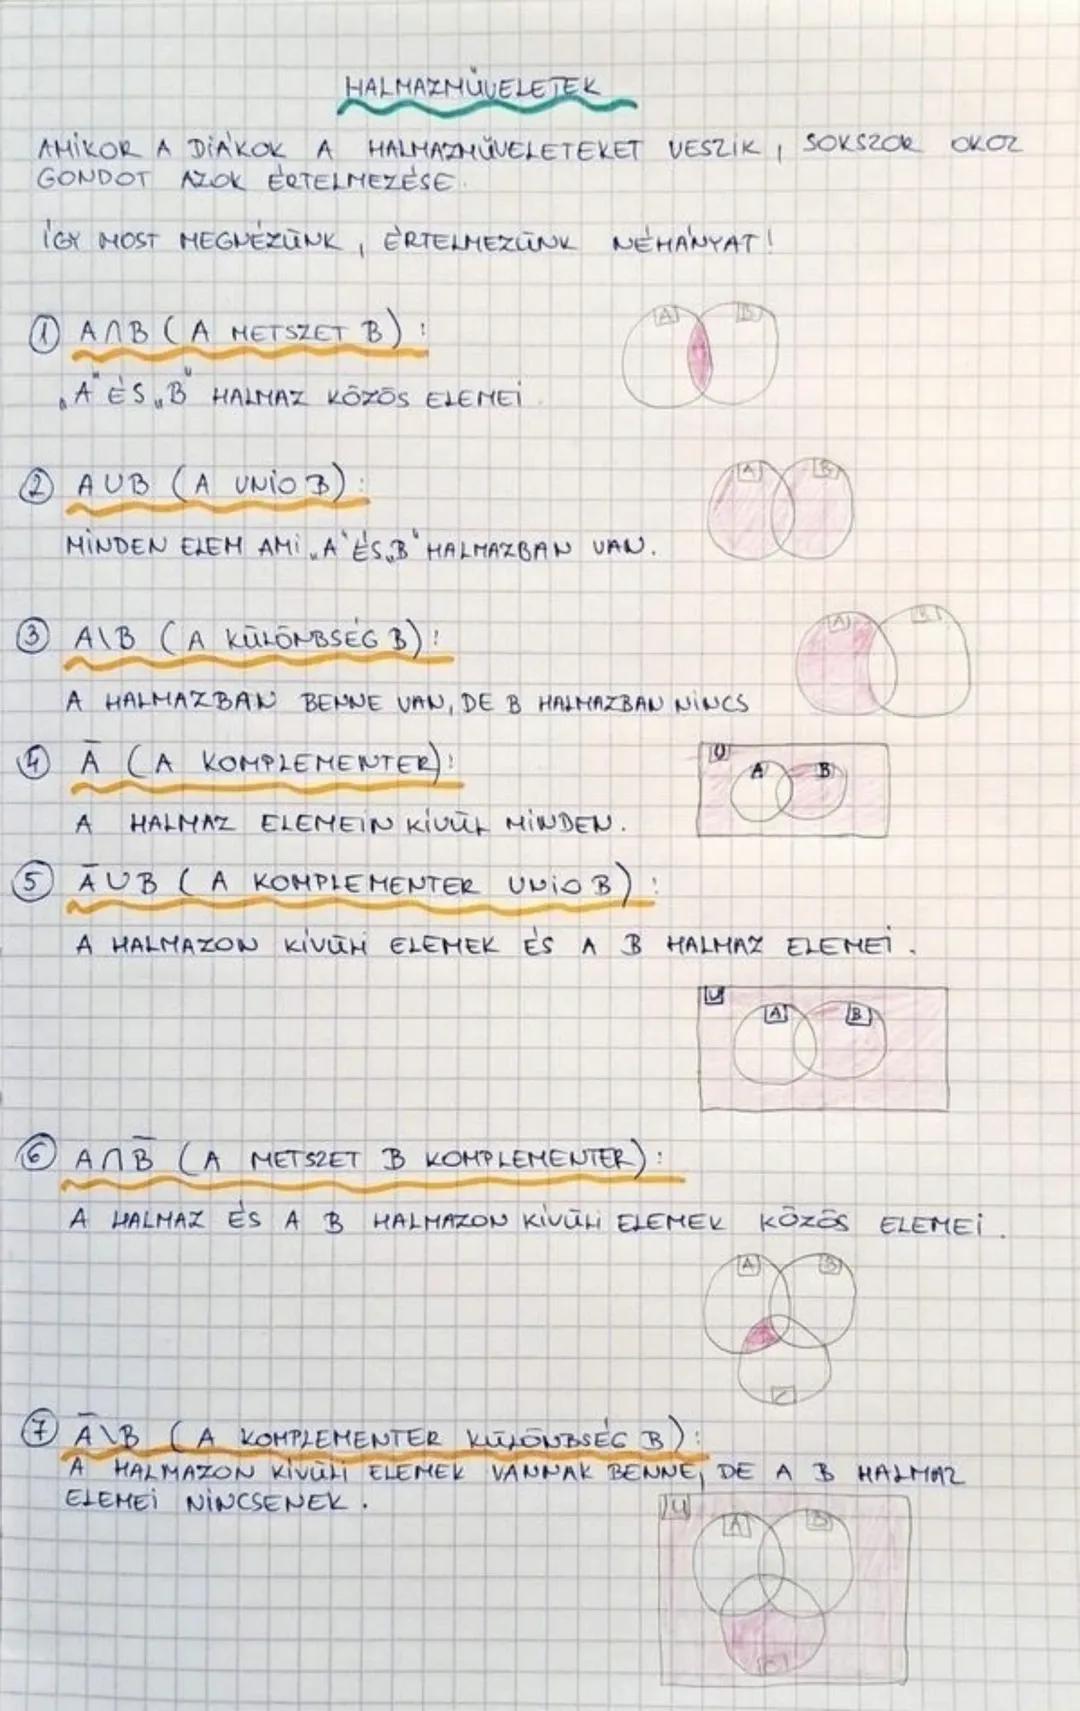 HALMAZMŰVELETEK
AMIKOR A DIÁKOK A HALMAZMŰVELETEKET VESZIK, SOKSZOR OKOZ
GONDOT AZOK ÉRTELMEZÉSE.
ÍGY MOST MEGNÉZÜNK, ÉRTELMEZÜNK NÉHÁNYAT!
① A∩B (A METSZET B):
A B
„A" ÉS „B" HALMAZ KÖZÖS ELEMEI
② A∪B (A UNIÓ B):
A B
MINDEN ELEM AMI „A" ÉS „B" HALMAZBAN VAN.
③ A\B (A KÜLÖNBSÉG B):
A B
A HALMAZBAN BENNE VAN, DE B HALMAZBAN NINCS
④ Ā (A KOMPLEMENTER):
U
A B
A HALMAZ ELEMEIN KÍVÜL MINDEN.
⑤ Ā∪B (A KOMPLEMENTER UNIÓ B):
A HALMAZON KÍVÜLI ELEMEK ÉS A B HALMAZ ELEMEI.
U
A B
⑥ A∩B̄ (A METSZET B KOMPLEMENTER):
A HALMAZ ÉS A B HALMAZON KÍVÜLI ELEMEK KÖZÖS ELEMEI.
A B
C
⑦ Ā\B (A KOMPLEMENTER KÜLÖNBSÉG B):
A HALMAZON KÍVÜLI ELEMEK VANNAK BENNE, DE A B HALMAZ
ELEMEI NINCSENEK.
U
A B
C